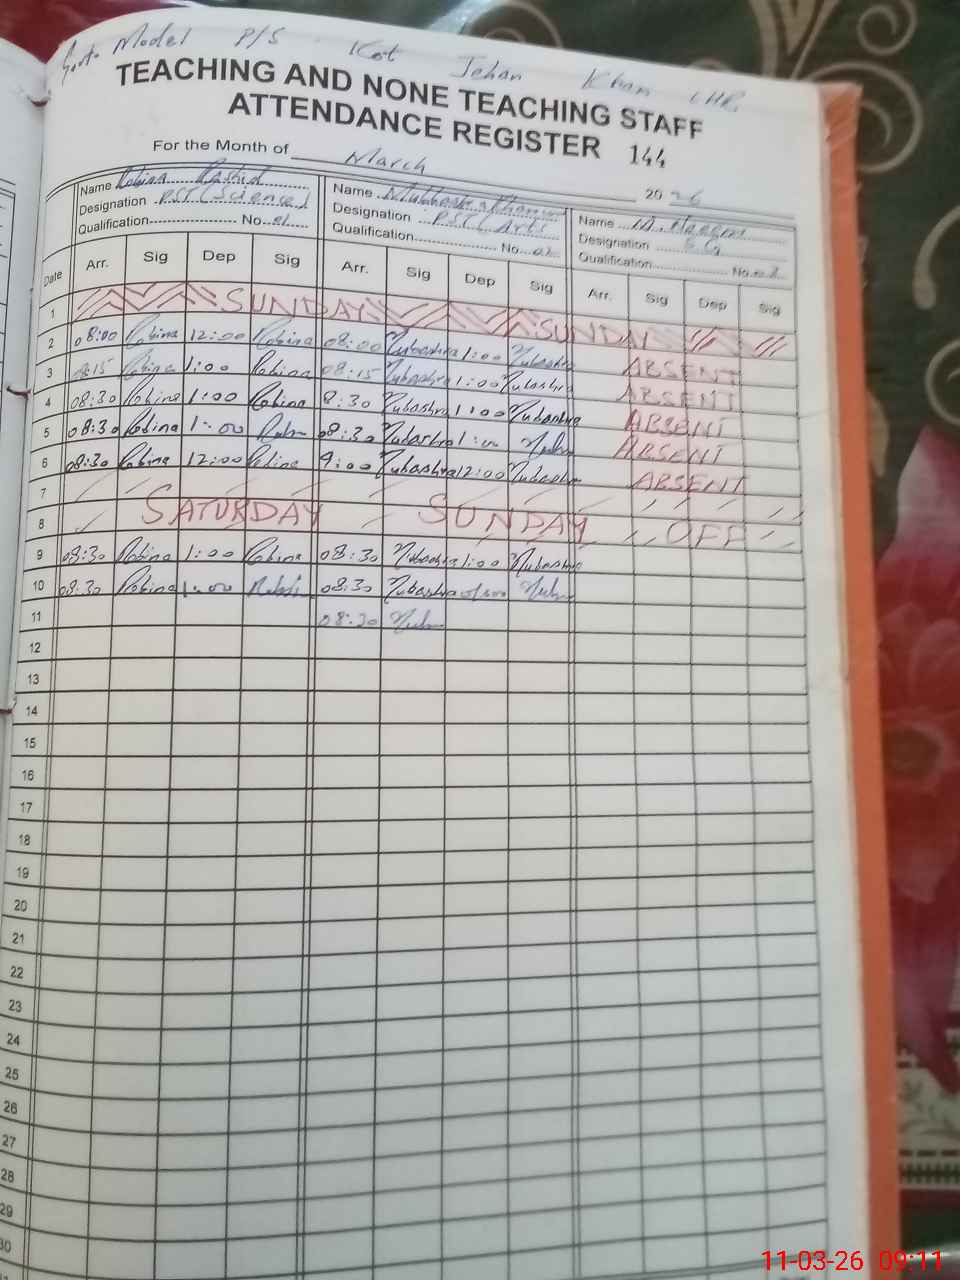 Govt. Model P/S Kot Jehan Khan LHR.
TEACHING AND NONE TEACHING STAFF
ATTENDANCE REGISTER 144
For the Month of March 2026
Name Robina Rashid Name Mubashra Name M.
Designation PST (Science) Designation PST (Arts Designation
Qualification No. 01 Qualification No. 02 Qualification No.
Date Arr. Sig Dep Sig Arr. Sig Dep Sig Arr. Sig Dep Sig
1 SUNDAY SUNDAY
2 08:00 Robina 12:00 Robina 08:00 Mubashra 1:00 Mubashra ABSENT
3 08:15 Robina 1:00 Robina 08:15 Mubashra 1:00 Mubashra ABSENT
4 08:30 Robina 1:00 Robina 8:30 Mubashra 1:00 Mubashra ABSENT
5 08:30 Robina 1:00 08:30 Mubashra 1:00 ABSENT
6 08:30 Robina 12:00 Robina 9:00 Mubashra 12:00 Mubashra ABSENT
7
8 SATURDAY SUNDAY OFF
9 08:30 Robina 1:00 Robina 08:30 Mubashra 1:00 Mubashra
10 08:30 Robina 1:00 08:30 Mubashra
11 08:20
12
13
14
15
16
17
18
19
20
21
22
23
24
25
26
27
28
29
30
11-03-26 09:11